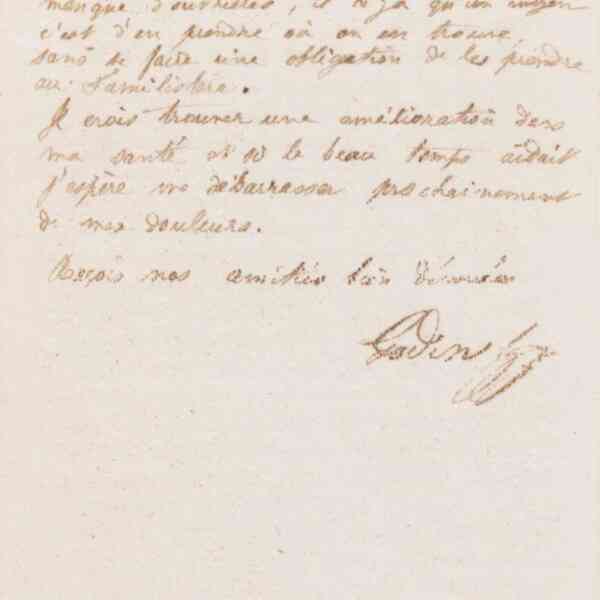 manque d'ouvrières, il n'y a qu'un moyen
c'est d'en prendre où on en trouve
sans se faire une obligation de les prendre
au Familistère.
Je crois trouver une amélioration dans
ma santé et si le beau temps aidait
j'espère me débarrasser prochainement
de mes douleurs.
Reçois nos amitiés bien dévouées
Godin